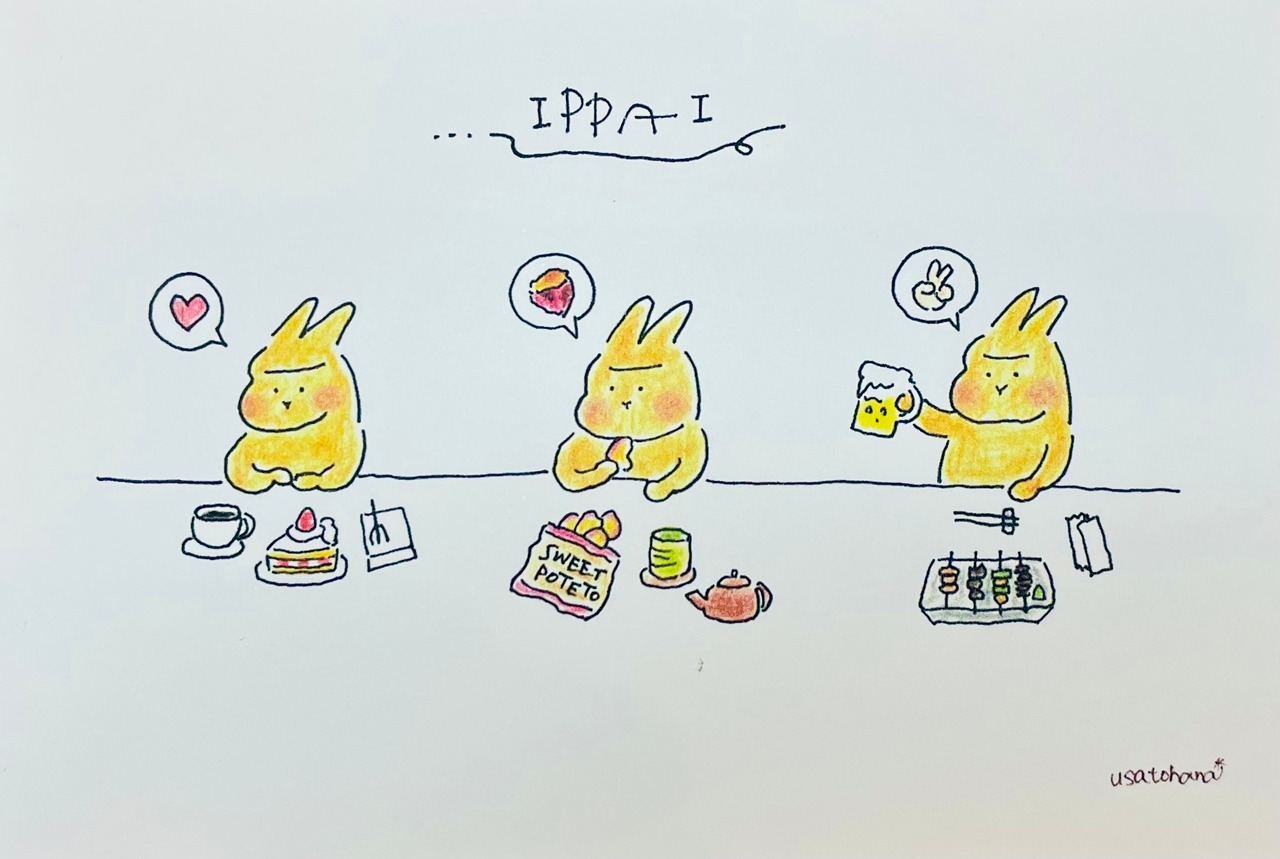 ... IPPAI
SWEET
POTETO
usatohana